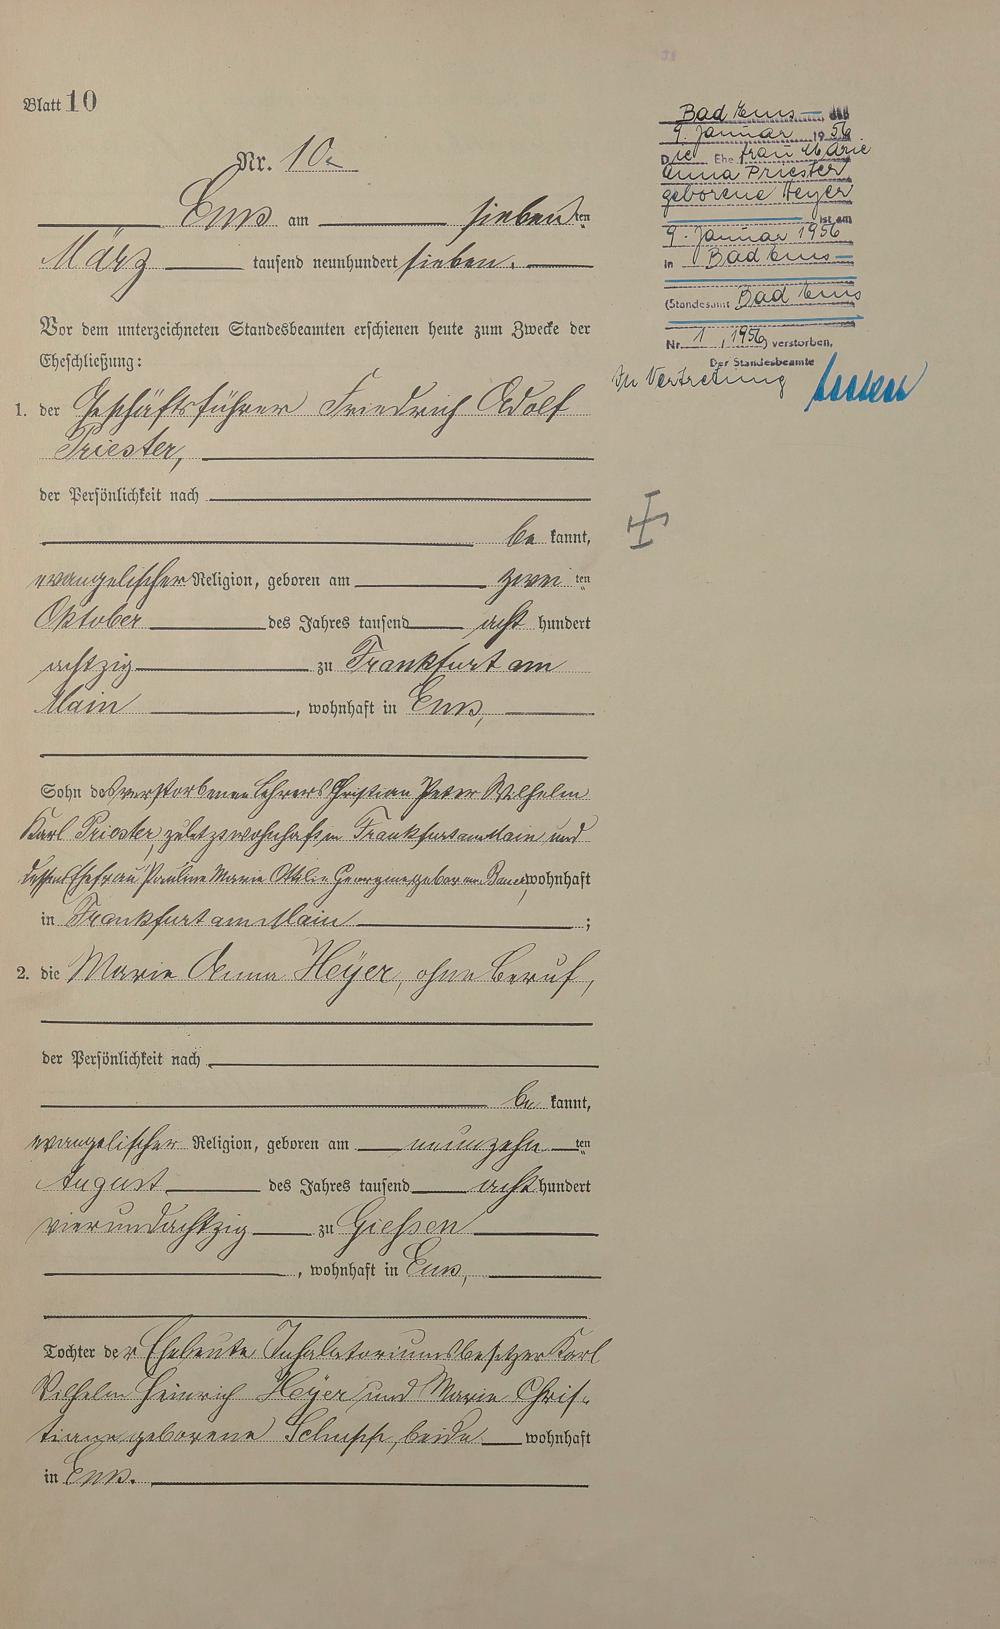 Blatt 10
Nr. 10.
Ems am siebenten
März tausend neunhundert sieben.
Vor dem unterzeichneten Standesbeamten erschienen heute zum Zwecke der
Eheschließung:
1. der Geschäftsführer Friedrich Adolf
Priester,
der Persönlichkeit nach
be kannt,
evangelischer Religion, geboren am zwei ten
Oktober des Jahres tausend acht hundert
achtzig zu Frankfurt am
Main, wohnhaft in Ems,
Sohn des verstorbenen Lehrers Christian Peter Wilhelm
Karl Priester, zuletzt wohnhaft in Frankfurt am Main und
dessen Ehefrau Pauline Marie Ottilie Georgine geborene wohnhaft
in Frankfurt am Main ;
2. die Marie Anna Heyer, ohne Beruf,
der Persönlichkeit nach
be kannt,
evangelischer Religion, geboren am neunzehn ten
August des Jahres tausend acht hundert
vierundachtzig zu Giessen
, wohnhaft in Ems,
Tochter der Eheleute Inhalatoriumsbesitzer Karl
Wilhelm Heinrich Heyer und Marie Chris-
tiane geborene beide wohnhaft
in Ems.
Bad Ems
9. Januar 1956
Die Ehefrau Marie
Anna Priester
geborene Heyer
ist am
9. Januar 1956
in Bad Ems
(Standesamt Bad Ems
Nr. 1, 1956) verstorben.
Der Standesbeamte
In Vertretung